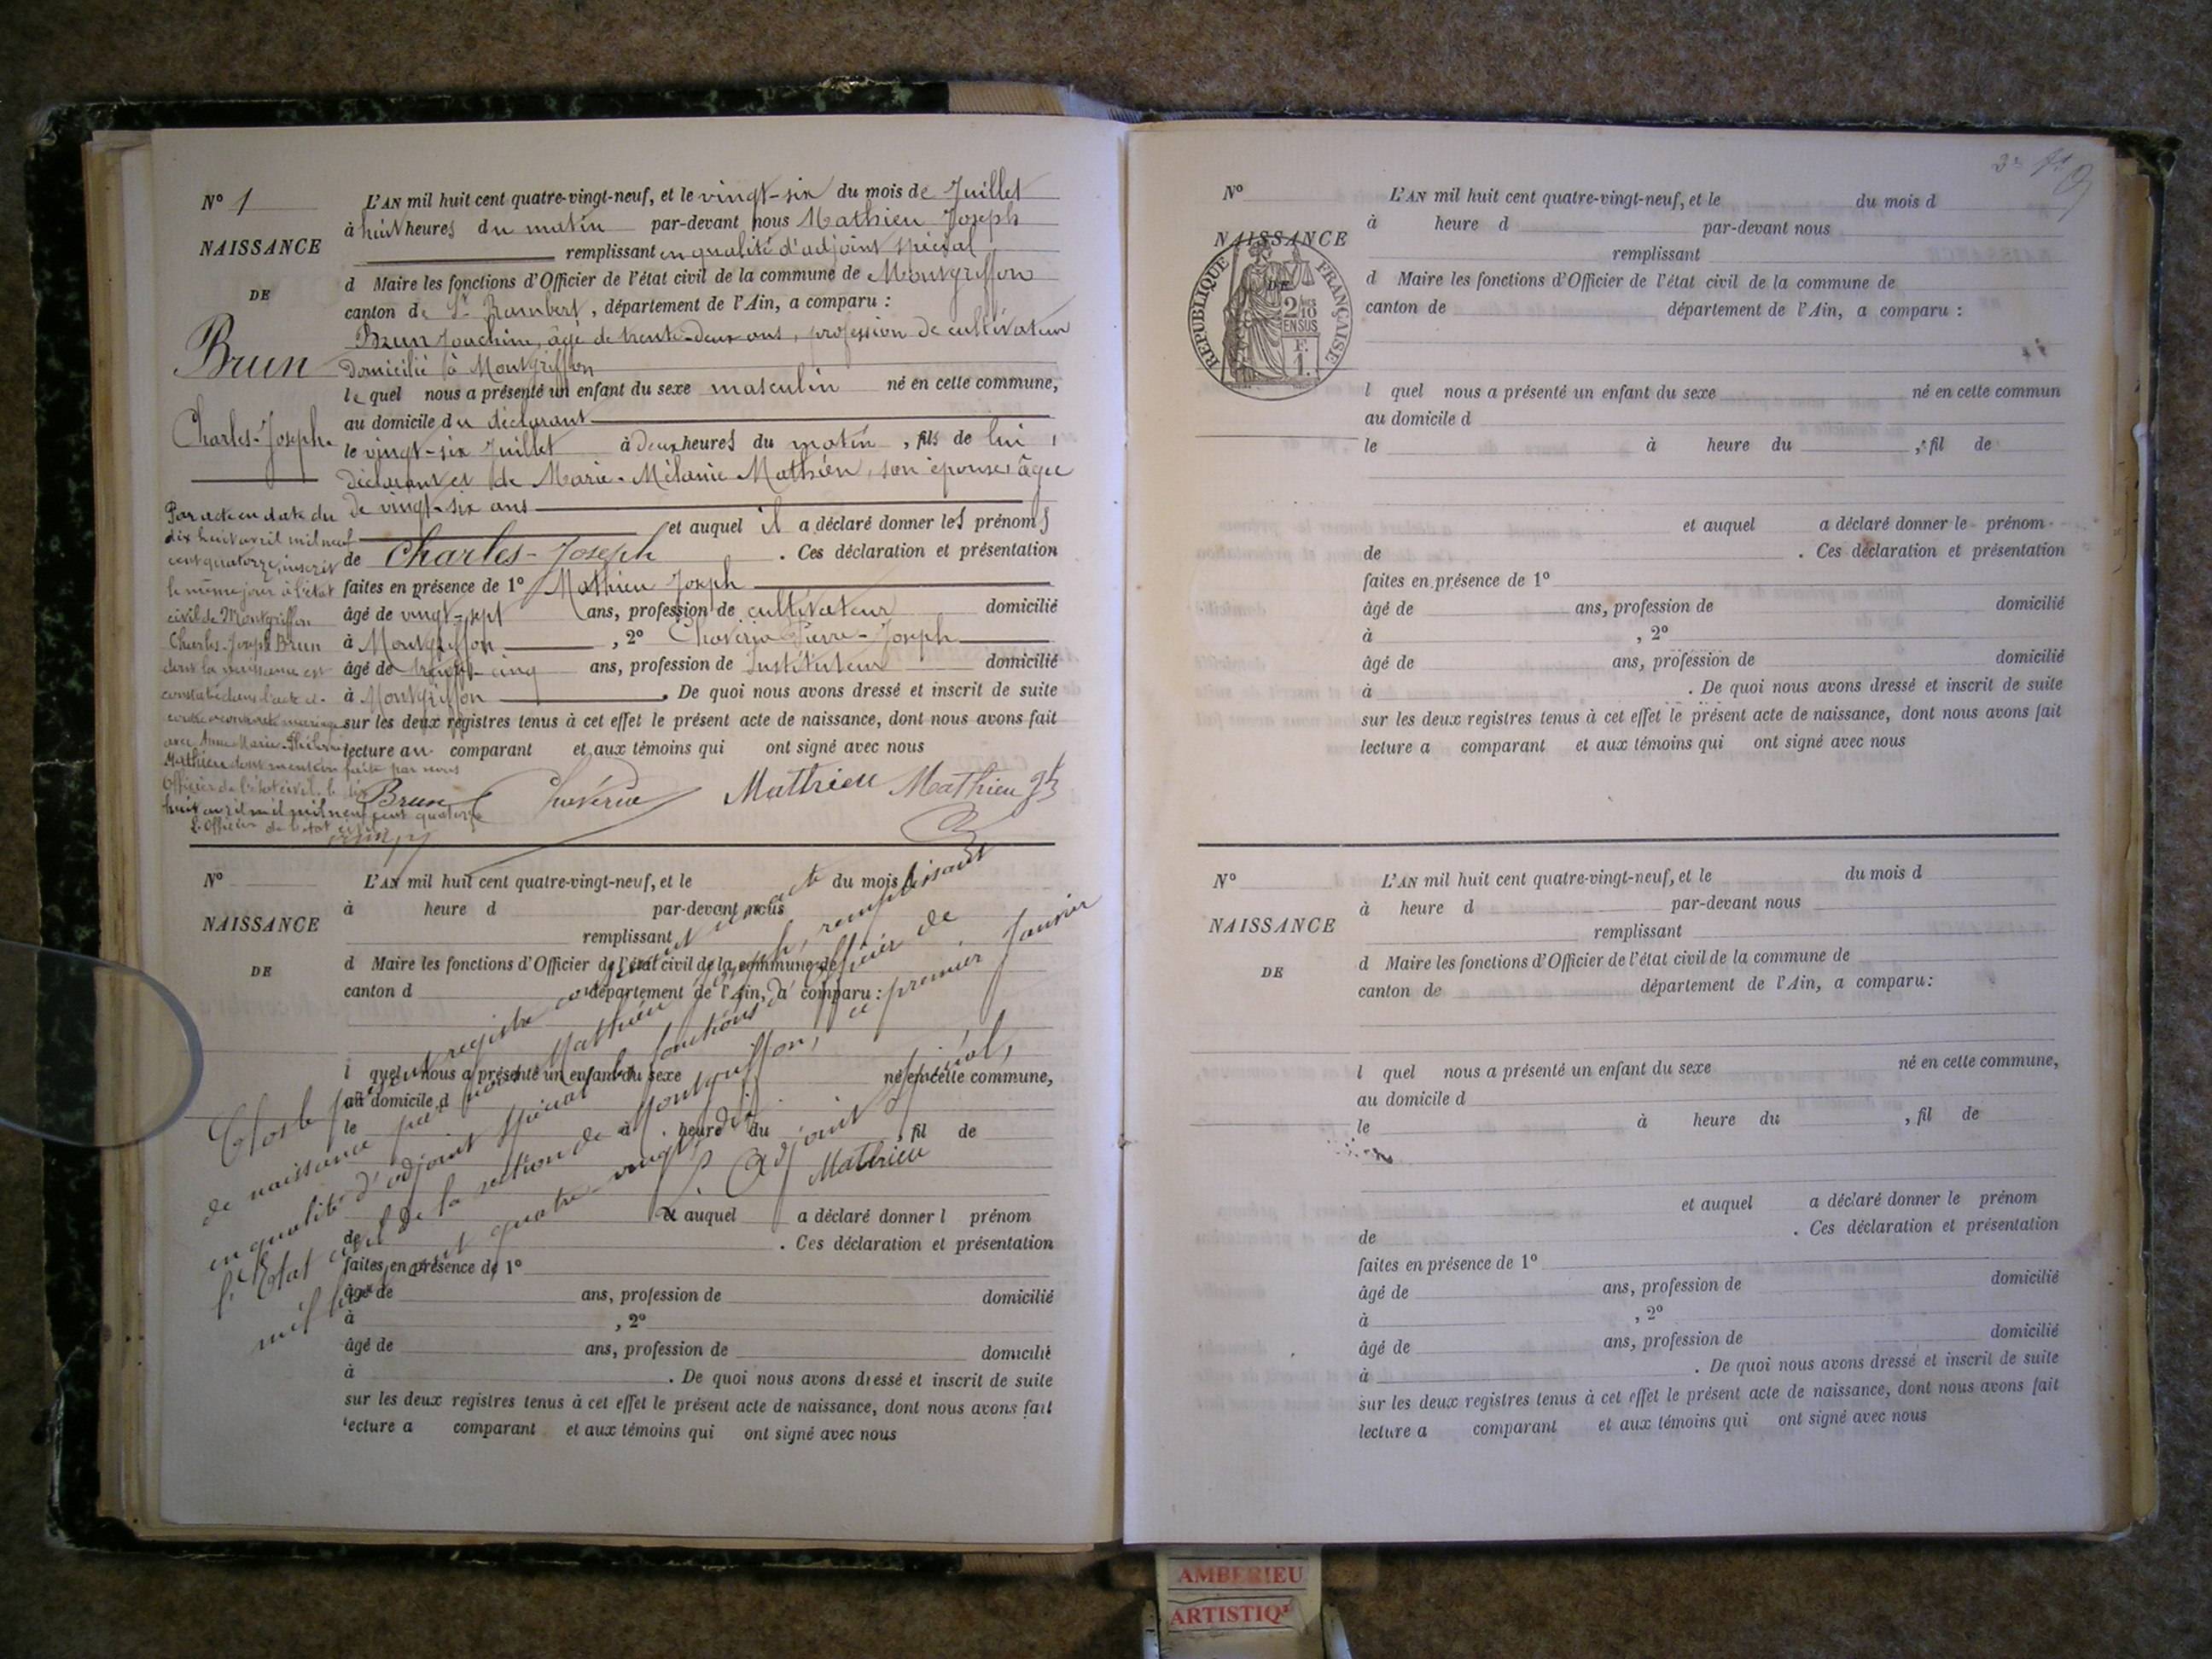 N° 1
NAISSANCE
DE
Brun
Charles-Joseph
Par acte en date du
dix huit avril mil neuf
cent quatorze, inscrit
le même jour à l'état
civil de Montgriffon
Charles-Joseph Brun
dont la naissance est
constatée dans l'acte ci-
contre a contracté mariage
avec Anne-Marie-
Mathieu dont mention faite par nous
Officier de l'état civil le dix
huit avril mil mil neuf cent quatorze
L'Officier de l'état civil
L'AN mil huit cent quatre-vingt-neuf, et le vingt-six du mois de Juillet
à huit heures du matin par-devant nous Mathieu Joseph
remplissant en qualité d'adjoint spécial
d Maire les fonctions d'Officier de l'état civil de la commune de Montgriffon
canton de St Rambert, département de l'Ain, a comparu :
Brun Joachim, âgé de trente-deux ans, profession de cultivateur
domicilié à Montgriffon
le quel nous a présenté un enfant du sexe masculin né en cette commune,
au domicile du déclarant
le vingt-six Juillet à deux heures du matin, fils de lui,
déclarant et de Marie-Mélanie Mathieu, son épouse, âgée
de vingt-six ans
et auquel il a déclaré donner les prénoms
de Charles-Joseph . Ces déclaration et présentation
faites en présence de 1° Mathieu Joseph
âgé de vingt-sept ans, profession de cultivateur domicilié
à Montgriffon, 2° Pierre-Joseph
âgé de ans, profession de Instituteur domicilié
à Montgriffon. De quoi nous avons dressé et inscrit de suite
sur les deux registres tenus à cet effet le présent acte de naissance, dont nous avons fait
lecture au comparant et aux témoins qui ont signé avec nous
Brun Mathieu Mathieu
N°
NAISSANCE
DE
L'AN mil huit cent quatre-vingt-neuf, et le du mois d
à heure d par-devant nous
remplissant
d Maire les fonctions d'Officier de l'état civil de la commune de
canton d département de l'Ain, a comparu :
l quel nous a présenté un enfant du sexe né en cette commune,
au domicile d
le à heure du , fil de
et auquel a déclaré donner l prénom
de . Ces déclaration et présentation
faites en présence de 1°
âgé de ans, profession de domicilié
à , 2°
âgé de ans, profession de domicilié
à . De quoi nous avons dressé et inscrit de suite
sur les deux registres tenus à cet effet le présent acte de naissance, dont nous avons fait
lecture a comparant et aux témoins qui ont signé avec nous
Clos le présent registre contenant un acte
de naissance par nous Mathieu Joseph, remplissant
en qualité d'adjoint spécial les fonctions d'officier de
l'Etat civil de la section de Montgriffon, ce premier Janvier
mil huit cent quatre-vingt-dix.
L'Adjoint Spécial,
Mathieu
N°
NAISSANCE
DE
RÉPUBLIQUE FRANÇAISE
2/10 EN SUS
F. 1.
L'AN mil huit cent quatre-vingt-neuf, et le du mois d
à heure d par-devant nous
remplissant
d Maire les fonctions d'Officier de l'état civil de la commune de
canton de département de l'Ain, a comparu :
l quel nous a présenté un enfant du sexe né en cette commun
au domicile d
le à heure du , fil de
et auquel a déclaré donner le prénom
de . Ces déclaration et présentation
faites en présence de 1°
âgé de ans, profession de domicilié
à , 2°
âgé de ans, profession de domicilié
à . De quoi nous avons dressé et inscrit de suite
sur les deux registres tenus à cet effet le présent acte de naissance, dont nous avons fait
lecture a comparant et aux témoins qui ont signé avec nous
N°
NAISSANCE
DE
L'AN mil huit cent quatre-vingt-neuf, et le du mois d
à heure d par-devant nous
remplissant
d Maire les fonctions d'Officier de l'état civil de la commune de
canton de département de l'Ain, a comparu:
l quel nous a présenté un enfant du sexe né en cette commune,
au domicile d
le à heure du , fil de
et auquel a déclaré donner le prénom
de . Ces déclaration et présentation
faites en présence de 1°
âgé de ans, profession de domicilié
à , 2°
âgé de ans, profession de domicilié
à . De quoi nous avons dressé et inscrit de suite
sur les deux registres tenus à cet effet le présent acte de naissance, dont nous avons fait
lecture a comparant et aux témoins qui ont signé avec nous
AMBERIEU
ARTISTIQ